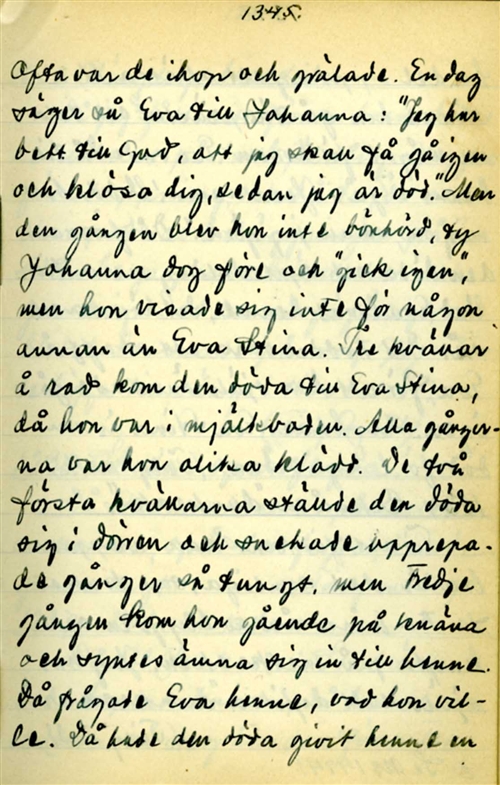 1345.
Ofta var de ihop och grälade. En dag
säger så Eva till Johanna: "Jag har
bett till Gud, att jag skall få gå igen
och klösa dig, sedan jag är död." Men
den gången blev hon inte bönhörd, ty
Johanna dog före och "gick igen",
men hon visade sig inte för någon
annan än Eva Stina. Tre kvällar
å rad kom den döda till Eva Stina,
då hon var i mjölkboden. Alla gånger-
na var hon olika klädd. De två
första kvällarna ställde den döda
sig i dörren och suckade upprepa-
de gånger så tungt, men tredje
gången kom hon gående på knäna
och syntes ämna sig in till henne.
Då frågade Eva henne, vad hon vil-
le. Då hade den döda givit henne en